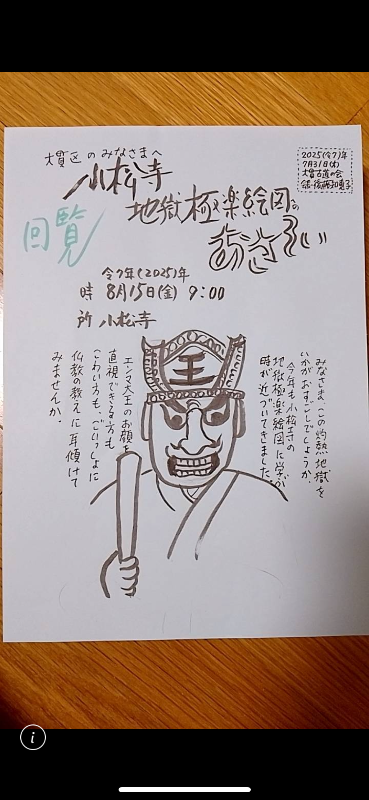 大貫区のみなさまへ
小松寺
地獄極楽絵図の
おさそい
回覧
2025(令7)年
7月31日(木)
大貫古道の会
令7年(2025)年
時 8月15日(金) 9:00
所 小松寺
みなさま、この灼熱地獄を
いかがおすごしでしょうか。
今年も小松寺の
地獄極楽絵図に学ぶ
時が近づいてきました。
王
エンマ大王のお顔を
直視できる方も
こわい方も、ごいっしょに
仏教の教えに耳傾けて
みませんか。